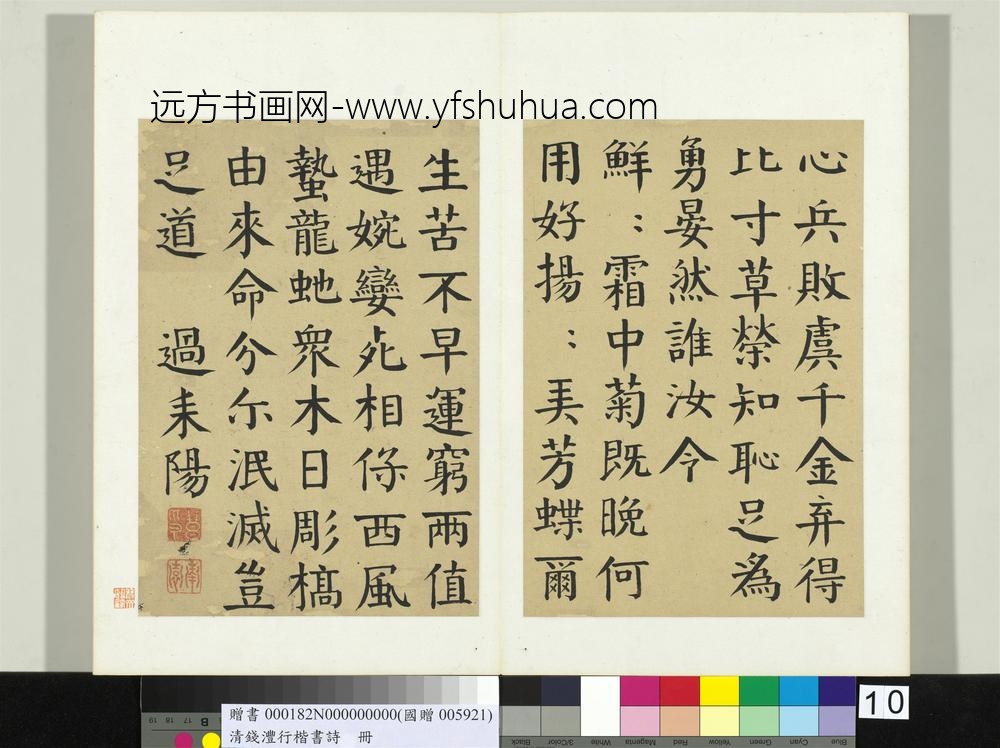 远方书画网-www.yfshuhua.com
心兵敗虞千金弃得
比寸草榮知恥足為
勇晏然誰汝今
鮮：霜中菊既晚何
用好揚：美芳蝶爾
生苦不早運窮兩值
遇婉孌死相保西風
蟄龍虵眾木日彫槁
由來命分尔泯滅豈
足道 過耒陽
10
贈書 000182N000000000(國贈 005921)
清錢灃行楷書詩 冊
19 18 17 B
Black
3/Color
White
Magenta
Red
Yellow
Green
Cyan
Blue